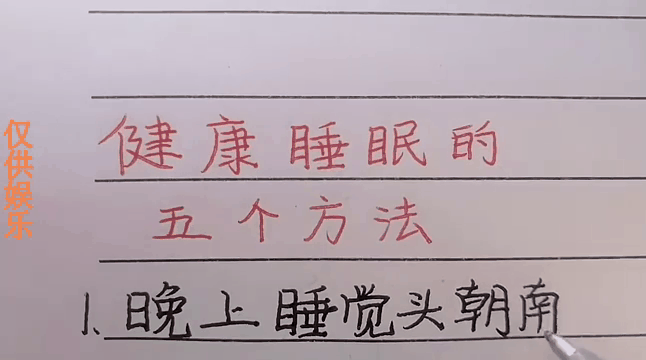 健康睡眠的
五个方法
1、晚上睡觉头朝南
仅供娱乐